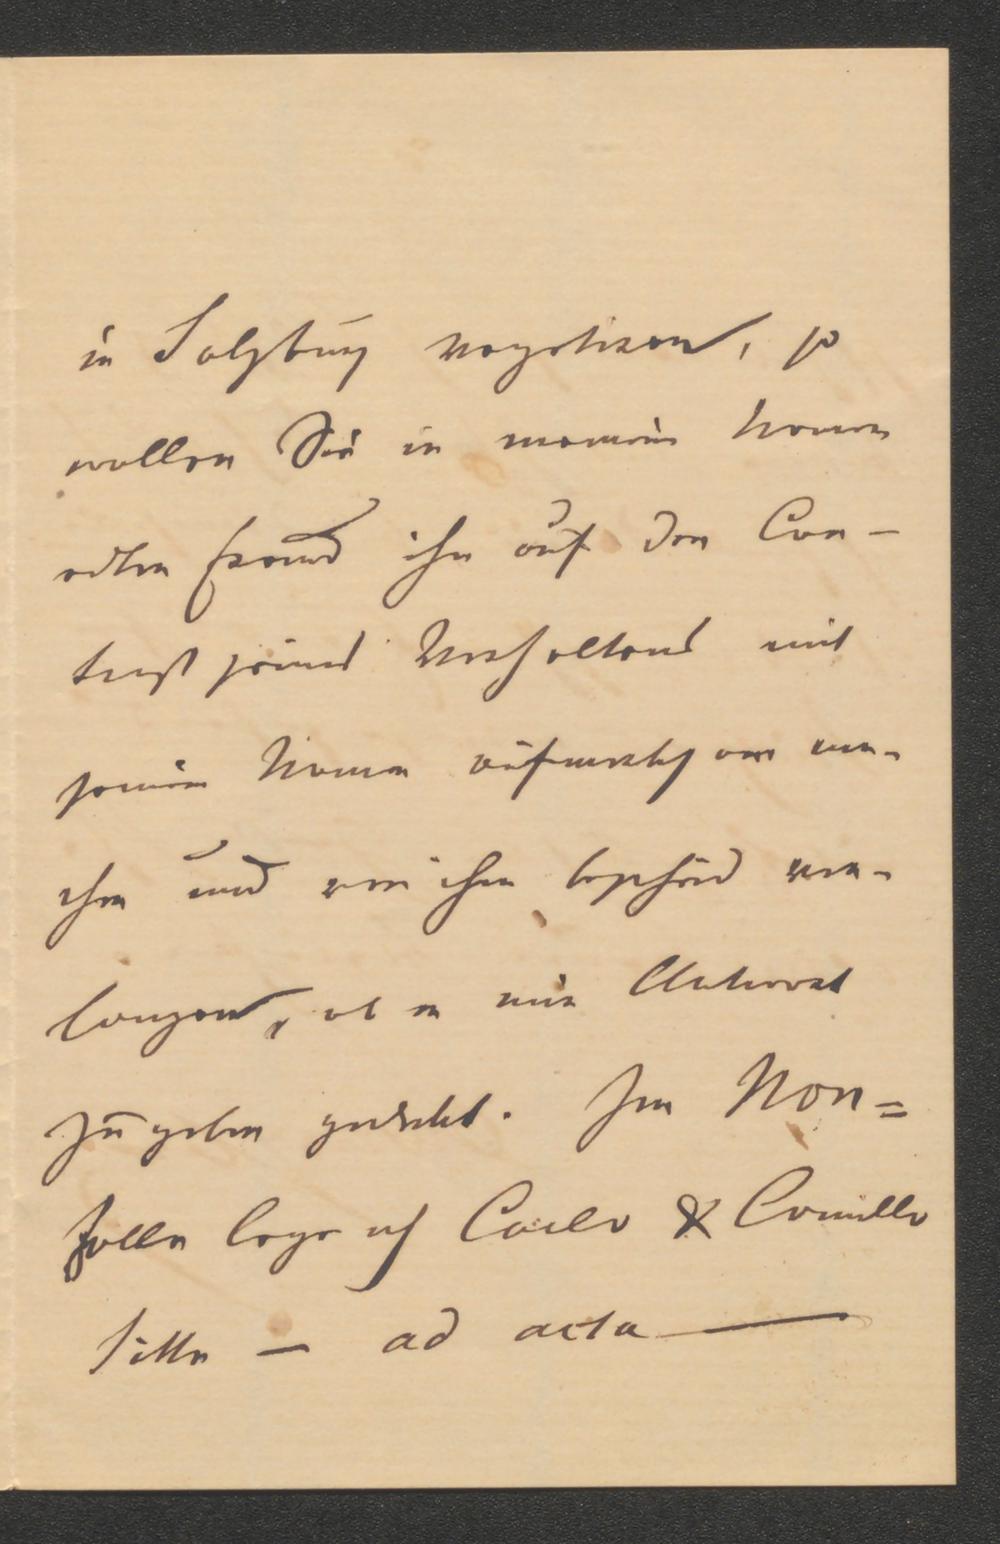 in Salzburg vegetiren, so
wollen Sie in meinem Namen
edler Freund ihn auf den Con-
trast seines Verhaltens mit
seinem Namen aufmerksam ma-
chen und von ihm bescheid ver-
langen, ob er mir Antwort
zu geben gedenkt. Im Non=
falle lege ich Carlo & Camillo
Sitte – ad acta —